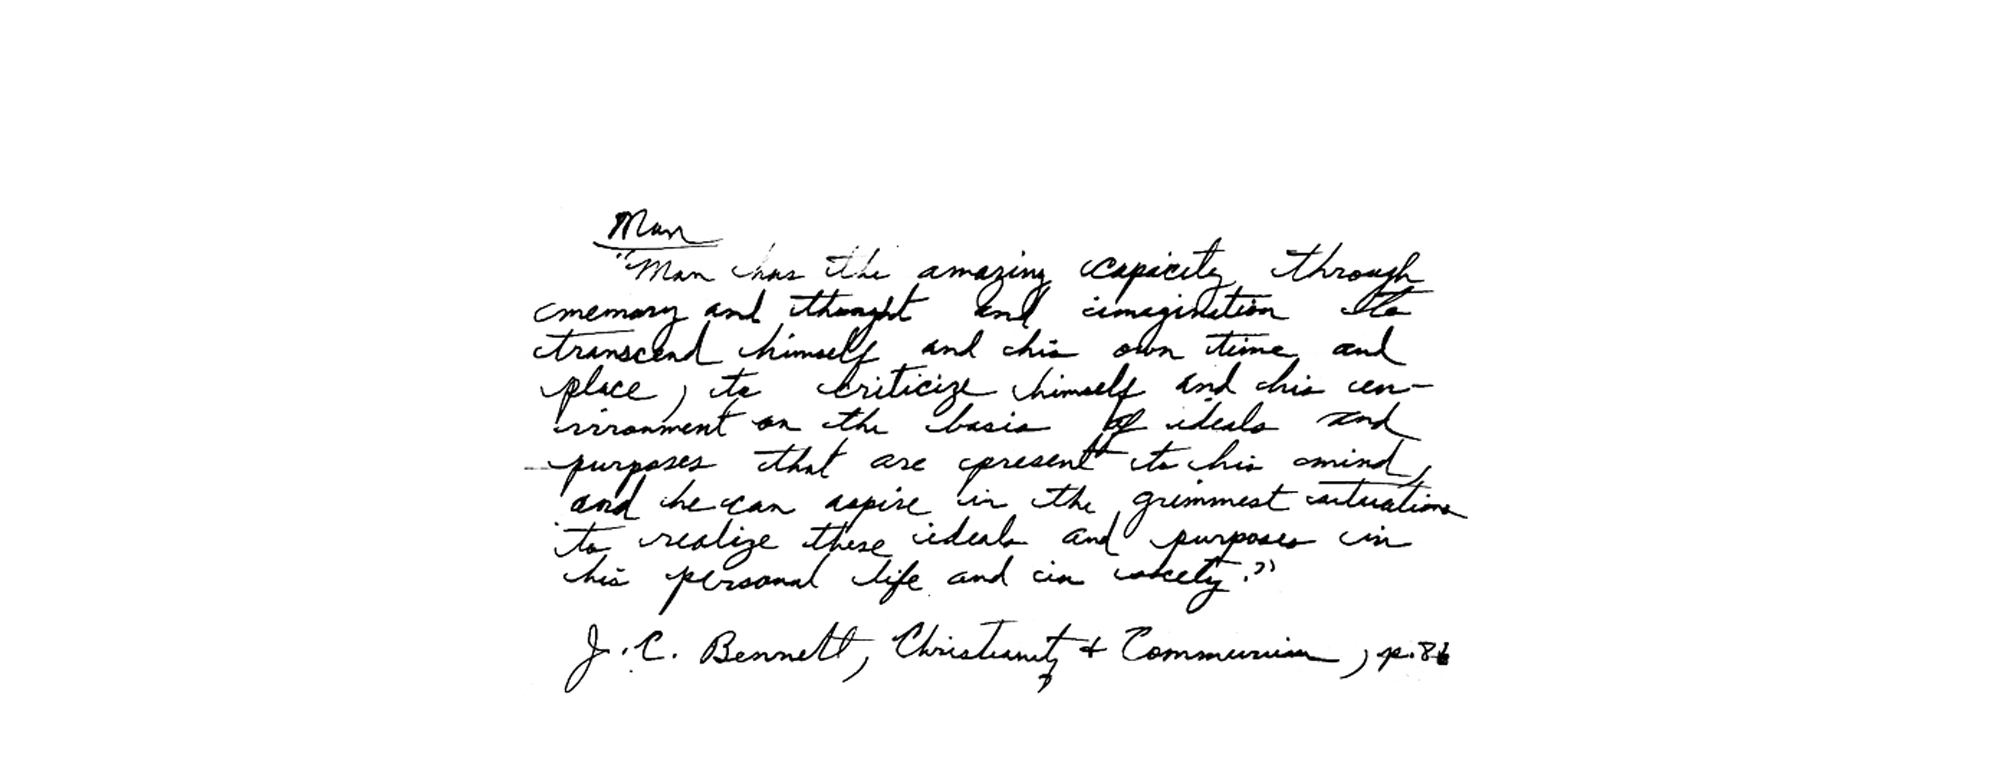 Man
"Man has the amazing capacity through
memory and thought and imagination to
transcend himself and his own time and
place, to criticize himself and his en-
vironment on the basis of ideals and
purposes that are present to his mind,
and he can aspire in the grimmest situations
to realize these ideals and purposes in
his personal life and in society."
J. C. Bennett, Christianity & Communism, p.